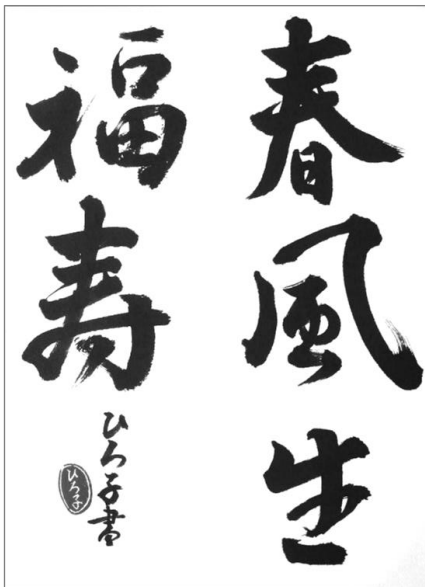 春風生
福寿
ひろ子書
ひろ子